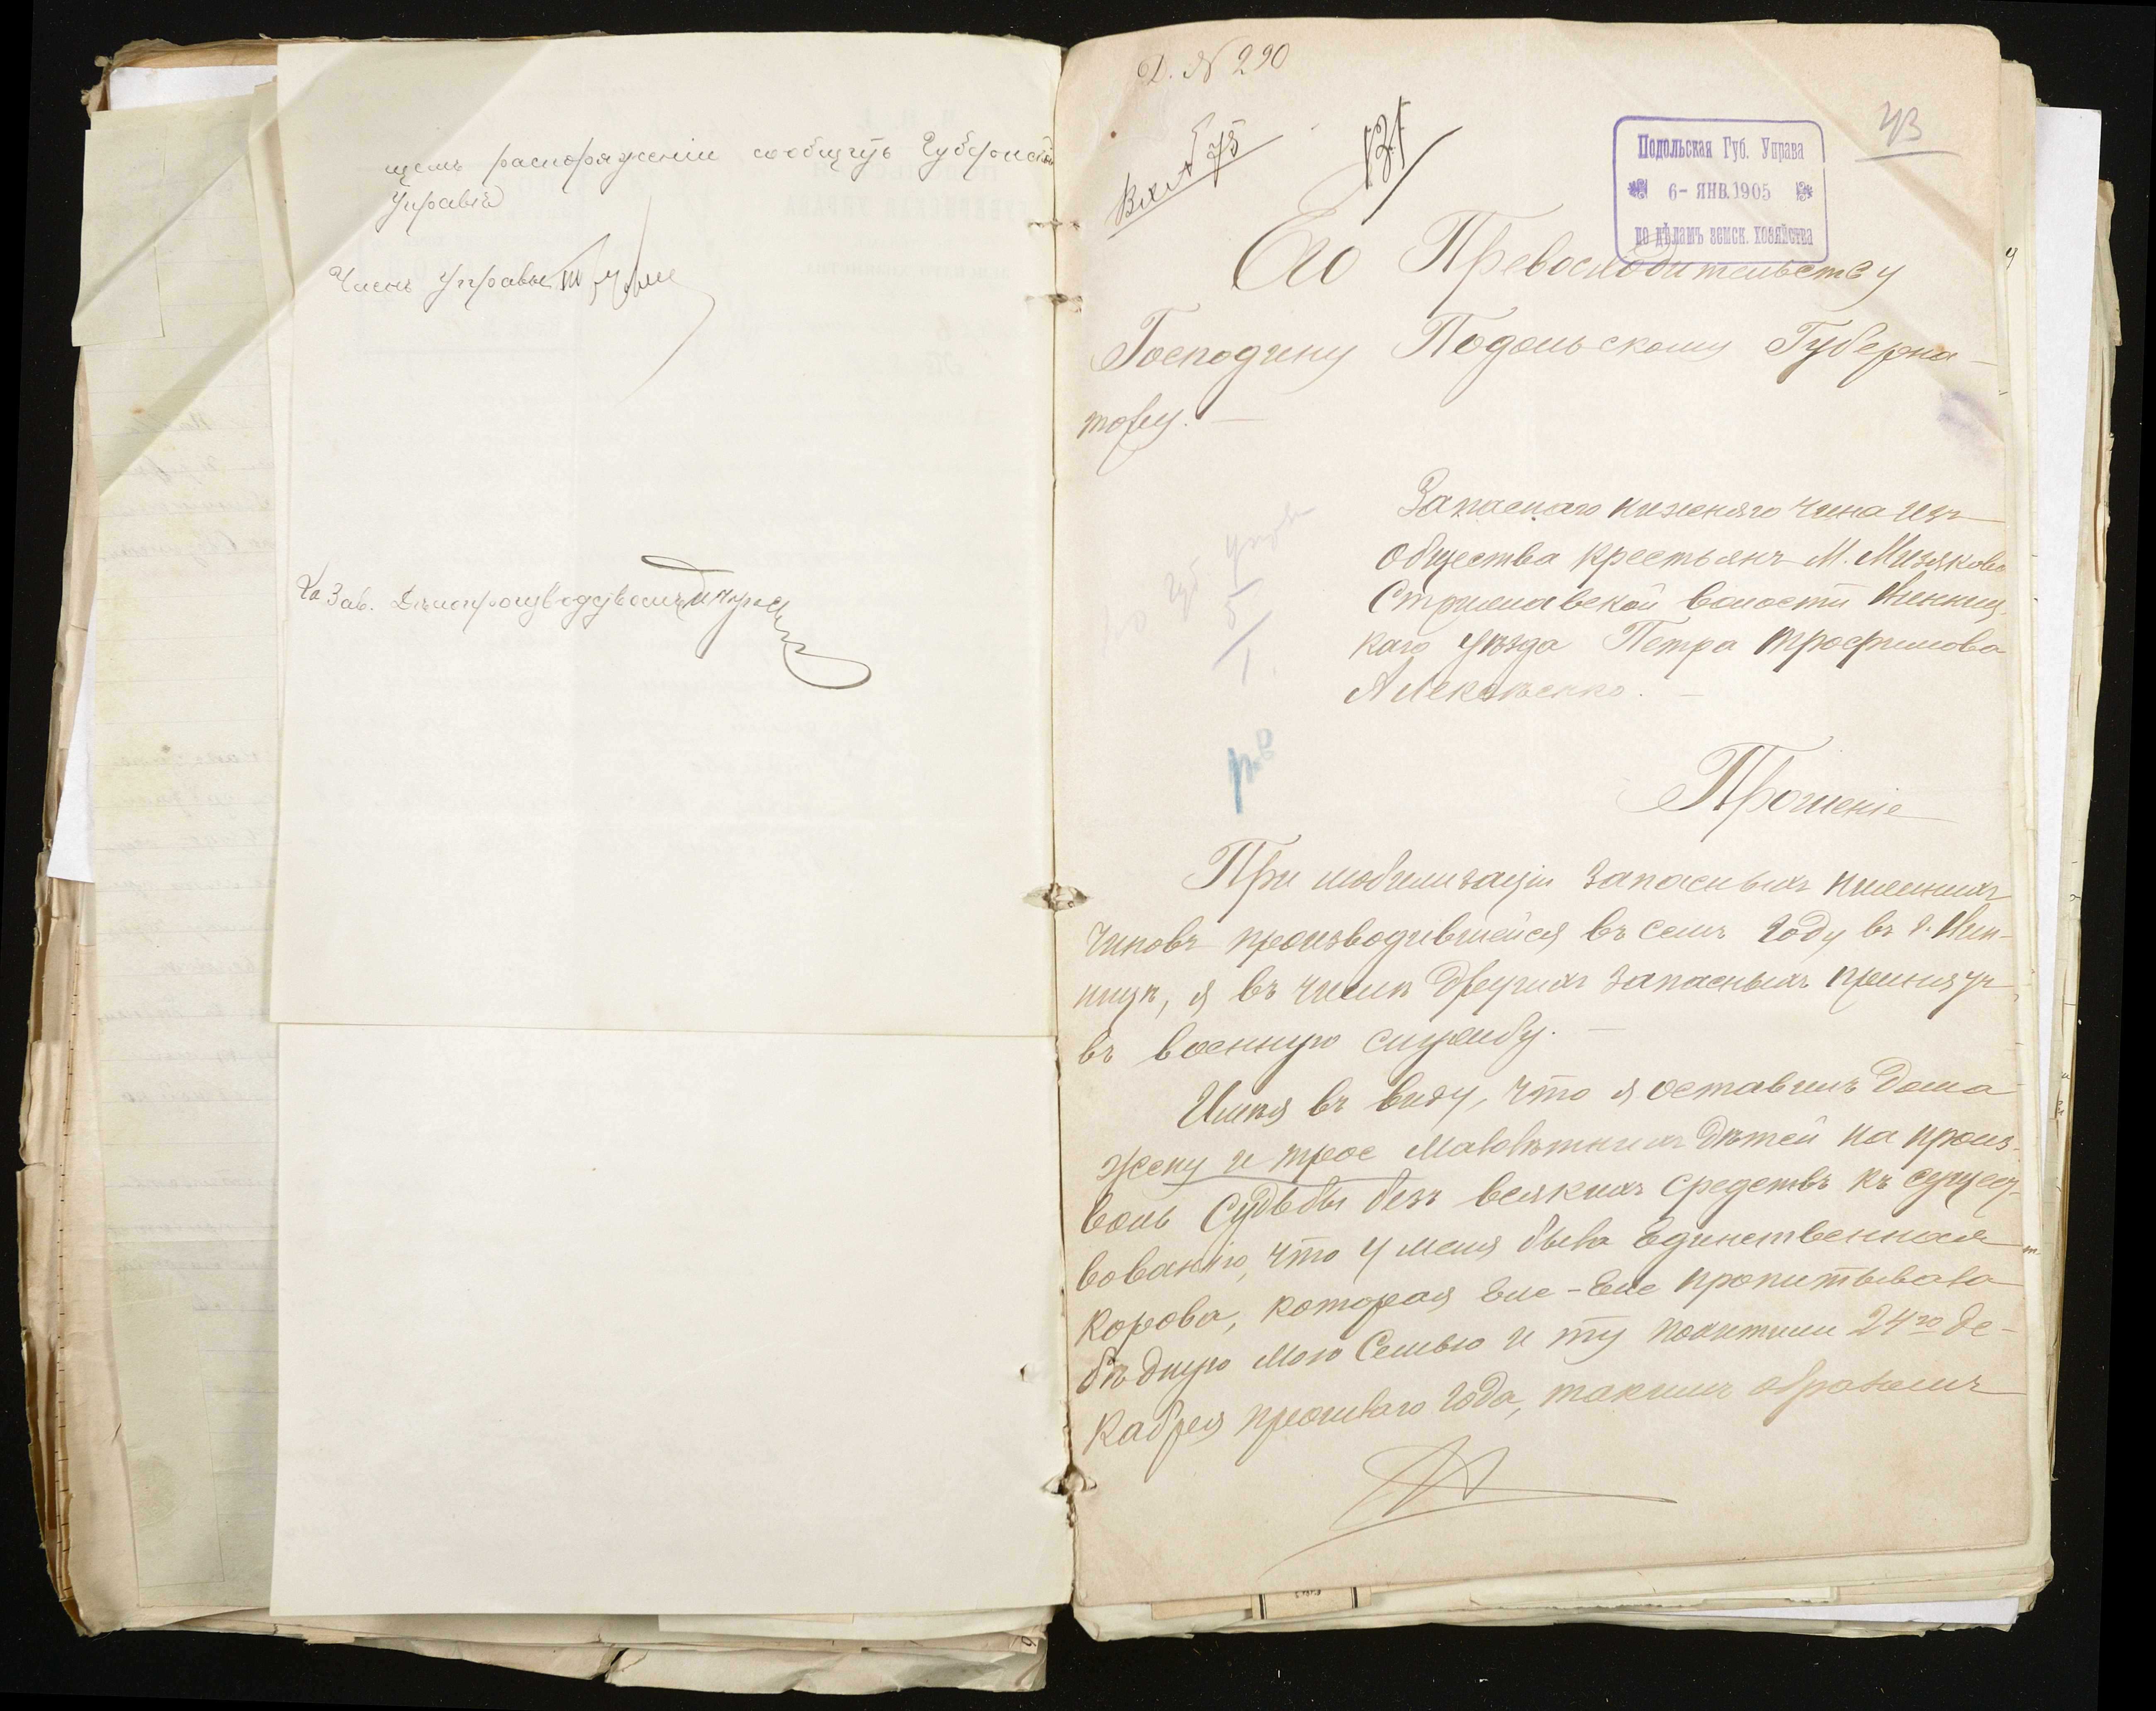 щемъ распоряженіи сообщить Губернской
Управѣ
Членъ Управы
За Зав. Дѣлопроизводствомъ
Д. № 290
Вх. № 75
131
43
Подольская Губ. Управа
6- ЯНВ. 1905
по дѣламъ земск. хозяйства
Его Превосходительству
Господину Подольскому Губерна-
тору. —
Запаснаго нижняго чина изъ
общества крестьянъ М. Мизякова
Стрижавской волости Винниц-
каго уѣзда Петра Трофимова
Алексѣенко. —
Прошеніе
При мобилизаціи запасныхъ нижнихъ
чиновъ производившейся въ семъ году въ г. Вин-
ницѣ, я въ числѣ другихъ запасныхъ принятъ
въ военную службу. —
Имѣя въ виду, что я оставилъ дома
жену и трое малолѣтнихъ дѣтей на произ-
волъ судьбы безъ всякихъ средствъ къ сущест-
вованію, что у меня была единственная
корова, которая еле-еле пропитывала
бѣдную мою семью и ту похитили 24го де-
кабря прошлаго года, такимъ образомъ